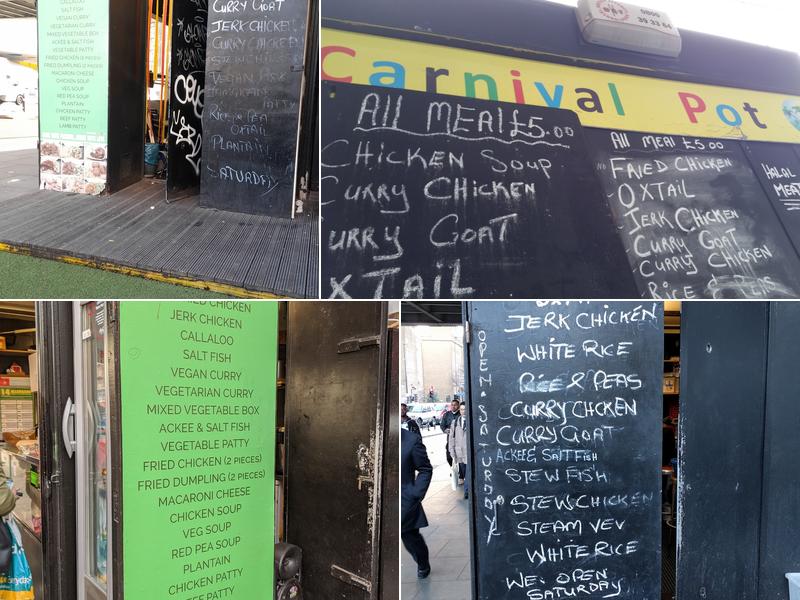 CALLALOO
SALT FISH
VEGAN CURRY
VEGETARIAN CURRY
MIXED VEGETABLE BOX
ACKEE & SALT FISH
VEGETABLE PATTY
FRIED CHICKEN (2 PIECES)
FRIED DUMPLING (2 PIECES)
MACARONI CHEESE
CHICKEN SOUP
VEG SOUP
RED PEA SOUP
PLANTAIN
CHICKEN PATTY
BEEF PATTY
LAMB PATTY
CURRY GOAT
JERK CHICKEN
CURRY CHICKEN
STEW CHICKEN
VEGAN
PATTY
RICE & PEA
OXTAIL
PLANTAIN
SATURDAY
0800
39 33 64
Carnival Pot
ALL MEAL £5.00
CHICKEN SOUP
CURRY CHICKEN
URRY GOAT
XTAIL
All MEAl £5.00
NO FRIED CHICKEN
OXTAIL
JERK CHICKEN
CURRY GOAT
CURRY CHICKEN
RICE & PEAS
HALAL
MEAT
FRIED CHICKEN
JERK CHICKEN
CALLALOO
SALT FISH
VEGAN CURRY
VEGETARIAN CURRY
MIXED VEGETABLE BOX
ACKEE & SALT FISH
VEGETABLE PATTY
FRIED CHICKEN (2 PIECES)
FRIED DUMPLING (2 PIECES)
MACARONI CHEESE
CHICKEN SOUP
VEG SOUP
RED PEA SOUP
PLANTAIN
CHICKEN PATTY
BEEF PATTY
OPEN. SATURDAY
JERK CHICKEN
WHITE RICE
RICE & PEAS
CURRY CHCKEN
CURRY GOAT
ACKEE & SALT FISH
STEW FISH
STEW CHICKEN
STEAM VEV
WHITE RICE
WE. OPEN
SATURDAY